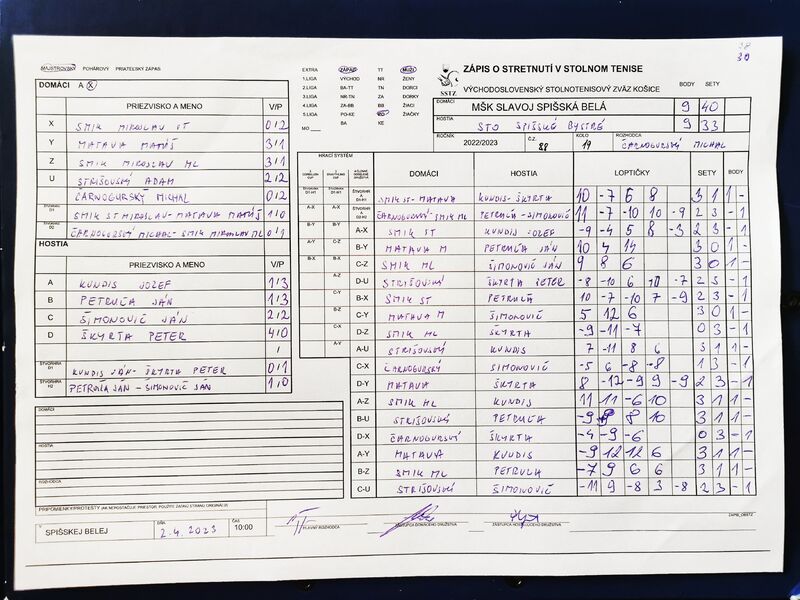 38
30
MAJSTROVSKÝ POHÁROVÝ PRIATEĽSKÝ ZÁPAS
DOMÁCI A X
PRIEZVISKO A MENO V/P
X SMIK MIROSLAV ST 0/2
Y MATAVA MATÁŠ 3/1
Z SMIK MIROSLAV ML 3/1
U STRIŠOVSKÝ ADAM 2/2
ČARNOGURSKÝ MICHAL 0/2
ŠTVORHRA D1 SMIK ST MIROSLAV - MATAVA MATÁŠ 1/0
ŠTVORHRA D2 ČARNOGURSKÝ MICHAL - SMIK MIROSLAV ML 0/1
HOSTIA
PRIEZVISKO A MENO V/P
A KUNDIS JOZEF 1/3
B PETRUĽA JÁN 1/3
C ŠIMONOVIČ JÁN 2/2
D ŠKYRTA PETER 4/0
/
ŠTVORHRA D1 KUNDIS JÁN - ŠKYRTA PETER 0/1
ŠTVORHRA H2 PETRUĽA JÁN - ŠIMONOVIČ JÁN 1/0
DOMÁCI
HOSTIA
ROZHODCA
PRIPOMIENKY/PROTESTY (AK NEPOSTAČUJE PRIESTOR, POUŽITE ZADNÚ STRANU ORIGINÁLU)
V SPIŠSKEJ BELEJ DŇA 2.4.2023 ČAS 10:00
EXTRA ZÁPAD TT MUŽI
1.LIGA VÝCHOD NR ŽENY
2.LIGA BA-TT TN DORCI
3.LIGA TN-NR ZA DORKY
4.LIGA ZA-BB BB ŽIACI
5.LIGA PO-KE ŽIAČKY
MO BA KE
SSTZ
ZÁPIS O STRETNUTÍ V STOLNOM TENISE
VÝCHODOSLOVENSKÝ STOLNOTENISOVÝ ZVÄZ KOŠICE
BODY SETY
DOMÁCI MŠK SLAVOJ SPIŠSKÁ BELÁ 9 40
HOSTIA STO SPIŠSKÉ BYSTRÉ 9 33
ROČNÍK 2022/2023 ČZ 88 KOLO 19 ROZHODCA ČARNOGURSKÝ MICHAL
HRACÍ SYSTÉM DOMÁCI HOSTIA LOPTIČKY SETY BODY
ŠTVORHRA SMIK ST - MATAVA KUNDIS - ŠKYRTA 10 -7 6 8 3 1 1 -
ŠTVORHRA ČARNOGURSKÝ - SMIK ML PETRUĽA - ŠIMONOVIČ 11 -7 -10 10 -9 2 3 - 1
A-X SMIK ST KUNDIS JOZEF -9 -4 5 8 -3 2 3 - 1
B-Y MATAVA M PETRUĽA JÁN 10 4 14 3 0 1 -
C-Z SMIK ML ŠIMONOVIČ JÁN 9 8 6 3 0 1 -
D-U STRIŠOVSKÝ ŠKYRTA PETER -8 -10 6 10 -7 2 3 - 1
B-X SMIK ST PETRUĽA 10 -7 -10 7 -9 2 3 - 1
C-Y MATAVA M ŠIMONOVIČ 5 12 6 3 0 1 -
D-Z SMIK ML ŠKYRTA -9 -11 -7 0 3 - 1
A-U STRIŠOVSKÝ KUNDIS 7 -11 8 6 3 1 1 -
C-X ČARNOGURSKÝ ŠIMONOVIČ -5 6 -8 -8 1 3 - 1
D-Y MATAVA ŠKYRTA 8 -12 -9 9 -9 2 3 - 1
A-Z SMIK ML KUNDIS 11 11 -6 10 3 1 1 -
B-U STRIŠOVSKÝ PETRUĽA -9 8 8 10 3 1 1 -
D-X ČARNOGURSKÝ ŠKYRTA -4 -9 -6 0 3 - 1
A-Y MATAVA KUNDIS -9 12 12 6 3 1 1 -
B-Z SMIK ML PETRUĽA -7 9 6 6 3 1 1 -
C-U STRIŠOVSKÝ ŠIMONOVIČ -11 9 -8 3 -8 2 3 - 1
HLAVNÝ ROZHODCA ZÁSTUPCA DOMÁCEHO DRUŽSTVA ZÁSTUPCA HOSŤUJÚCEHO DRUŽSTVA